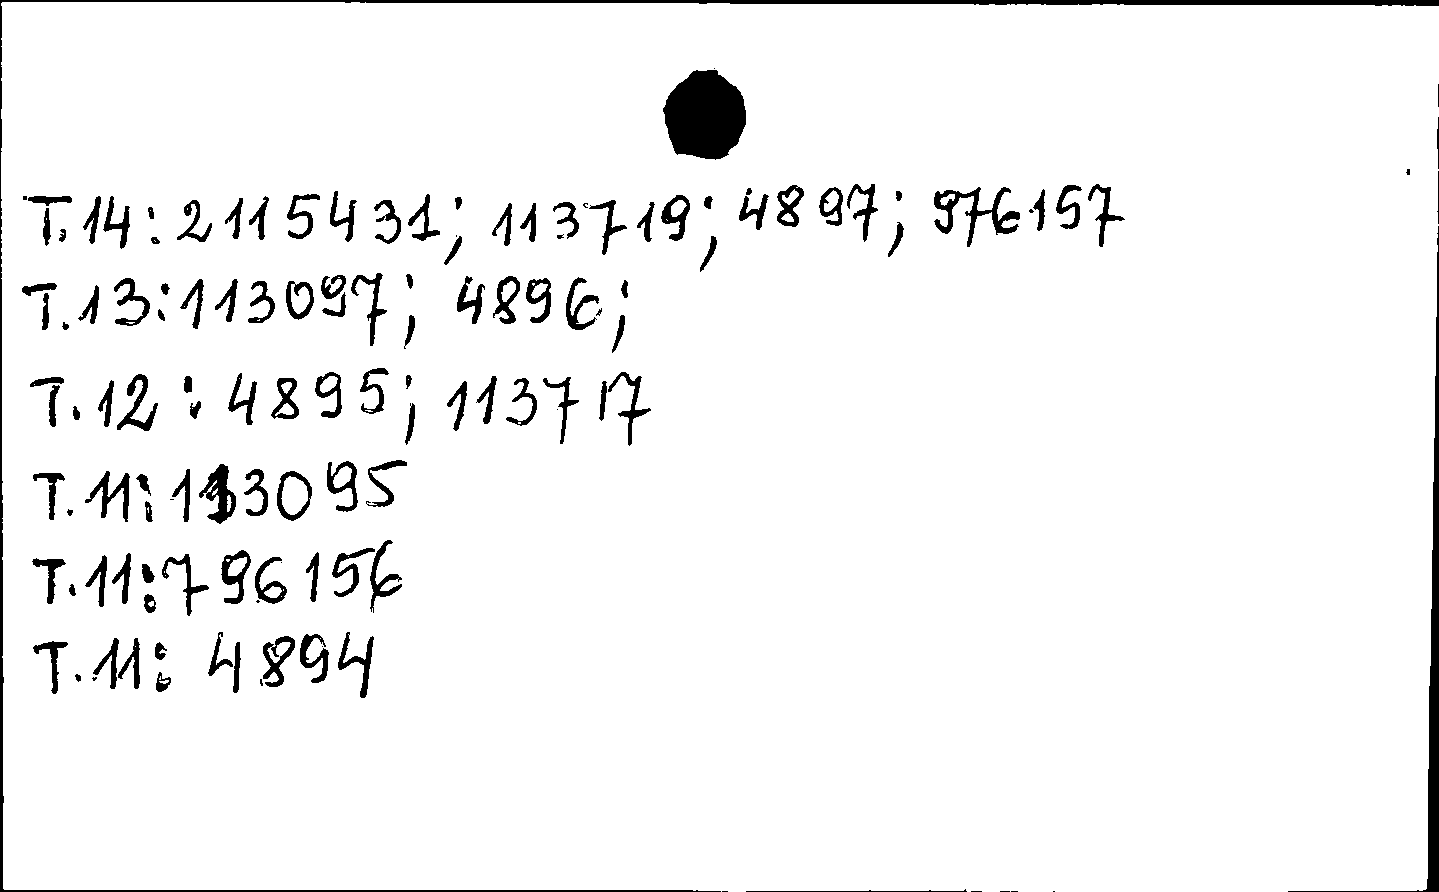 T.14: 2115431; 113719; 4897; 976157
T.13: 113097; 4896;
T.12: 4895; 113717
T.11: 113095
T.11: 796156
T.11: 4894